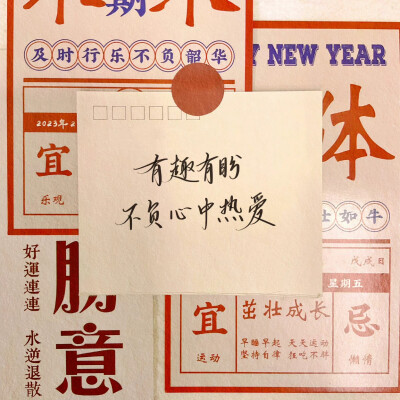 期
及时行乐不负韶华
NEW YEAR
2023年2
宜
乐观
有趣有盼
不负心中热爱
体
壮如牛
戊戌日
星期五
宜
运动
茁壮成长
早睡早起 天天运动
坚持自律 狂吃不胖
忌
懒惰
勝意
好運連連
水逆退散